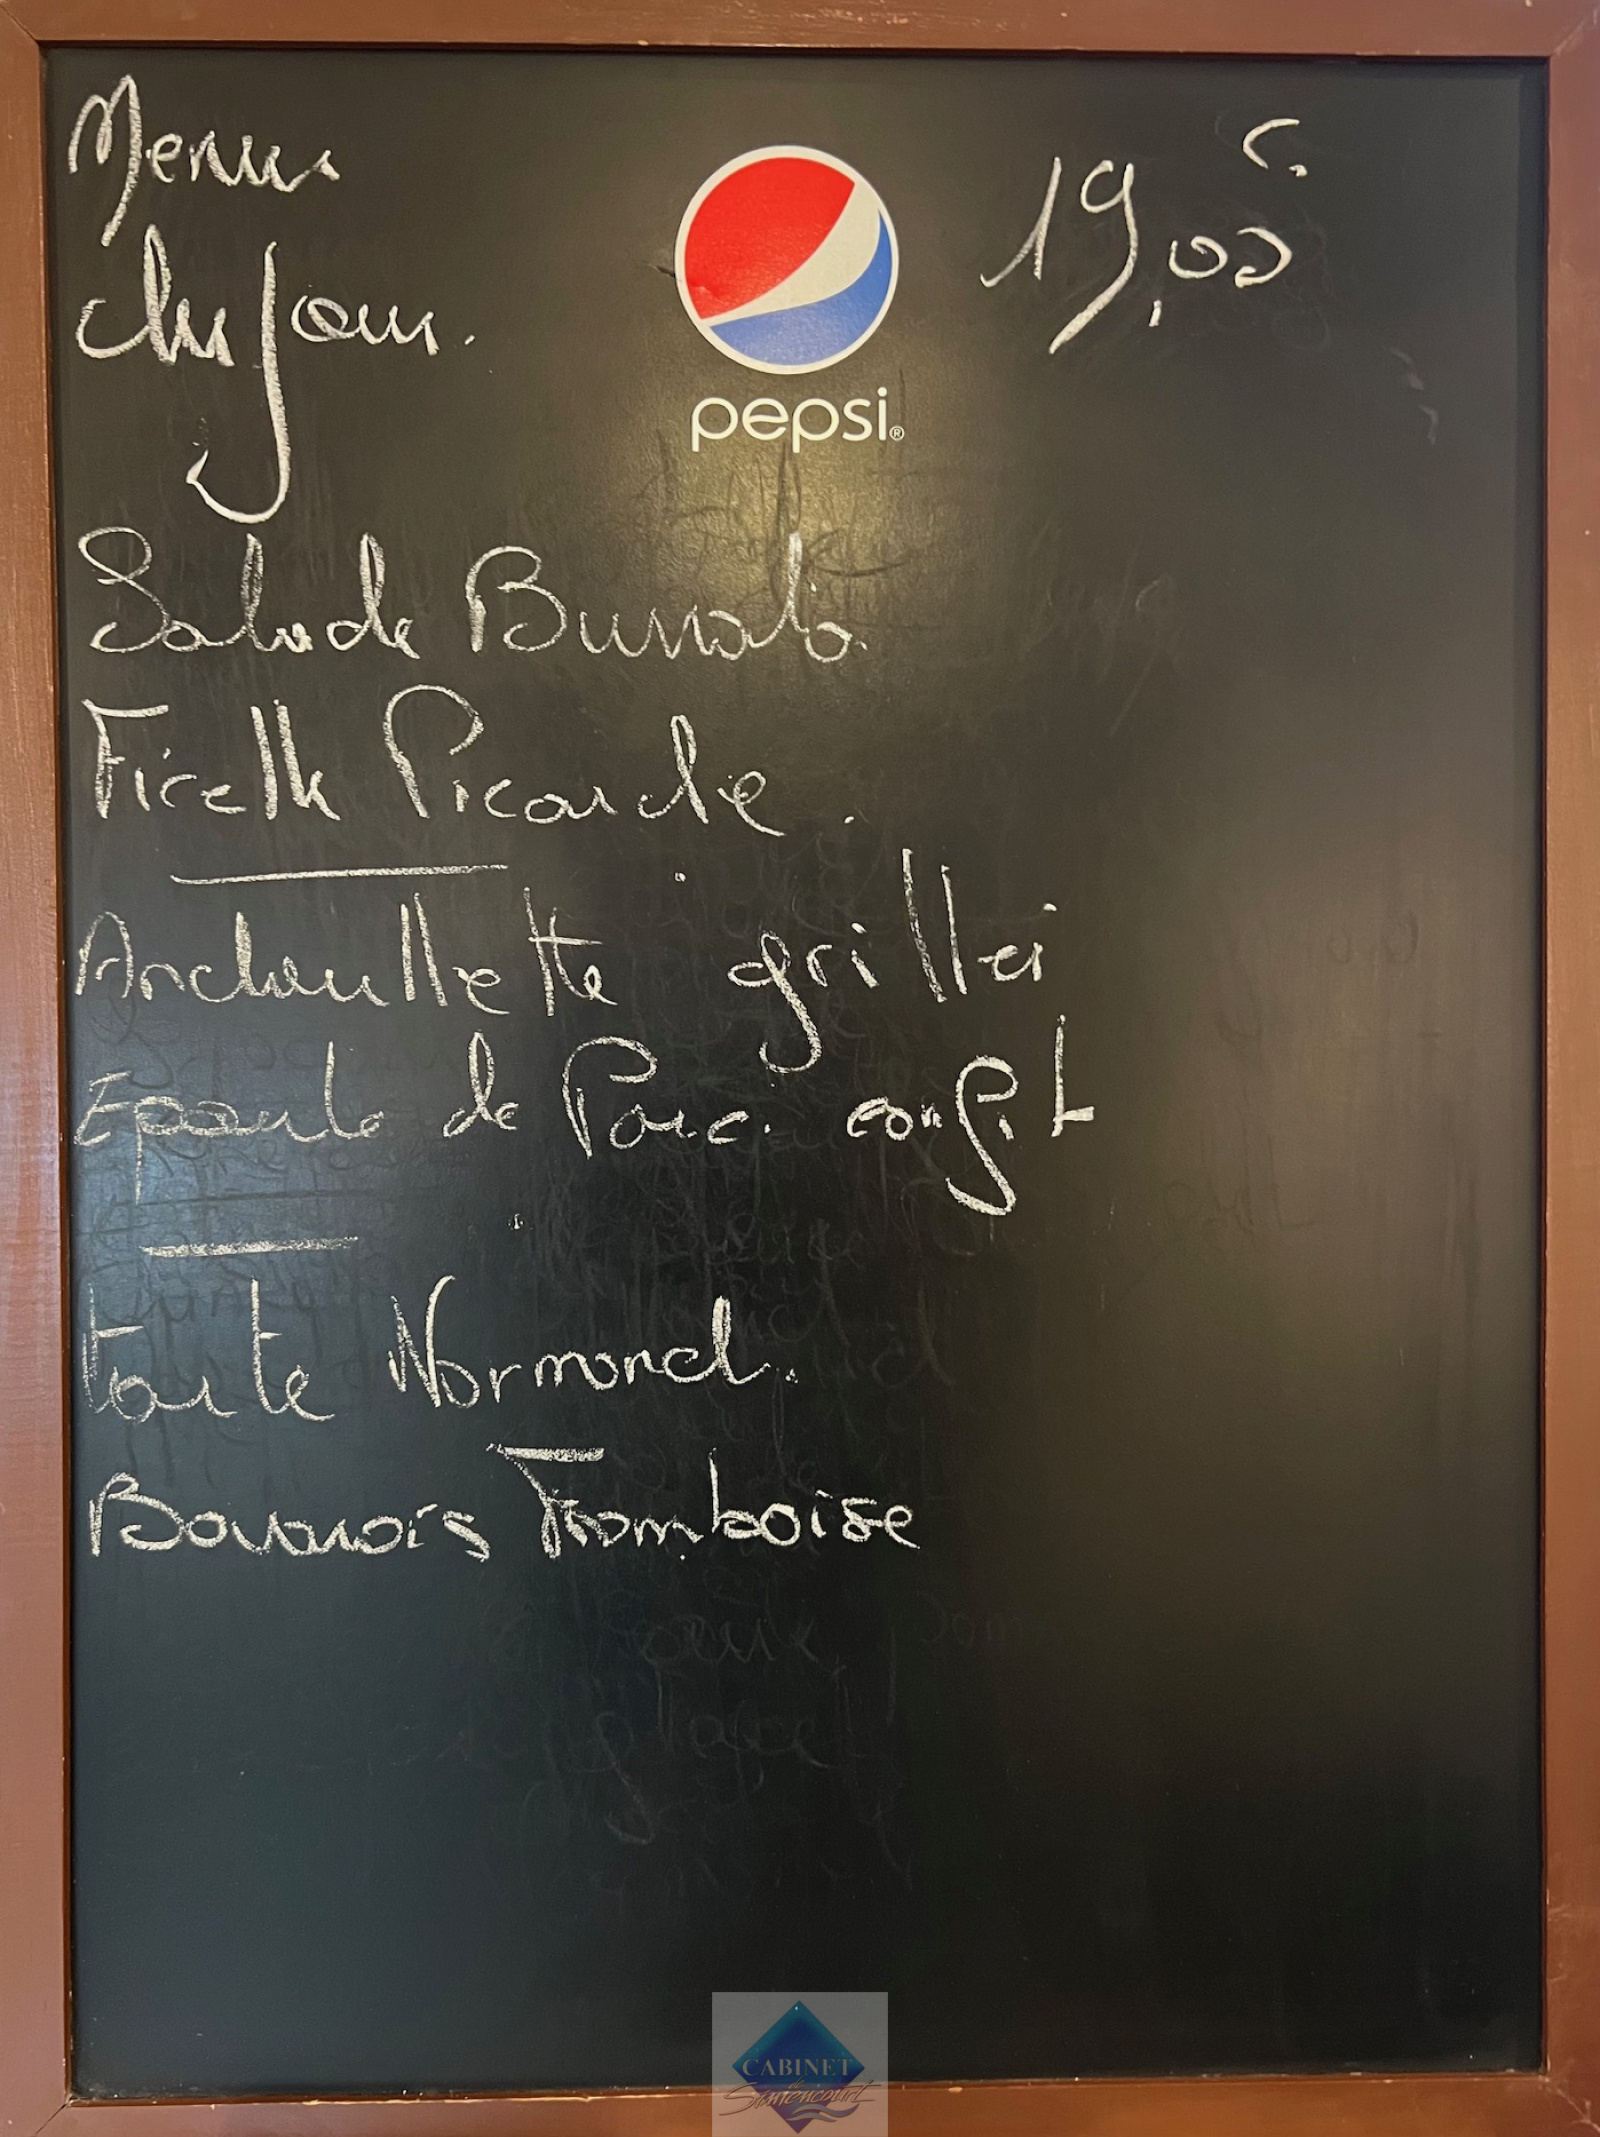 Menu
du Jour.
19,00 €
pepsi®
Salade Burrata.
Ficelle Picarde.
Andouillette grillée
Epaule de Porc confit
tarte Normand.
Bavarois Framboise
CABINET
de
Santencourt